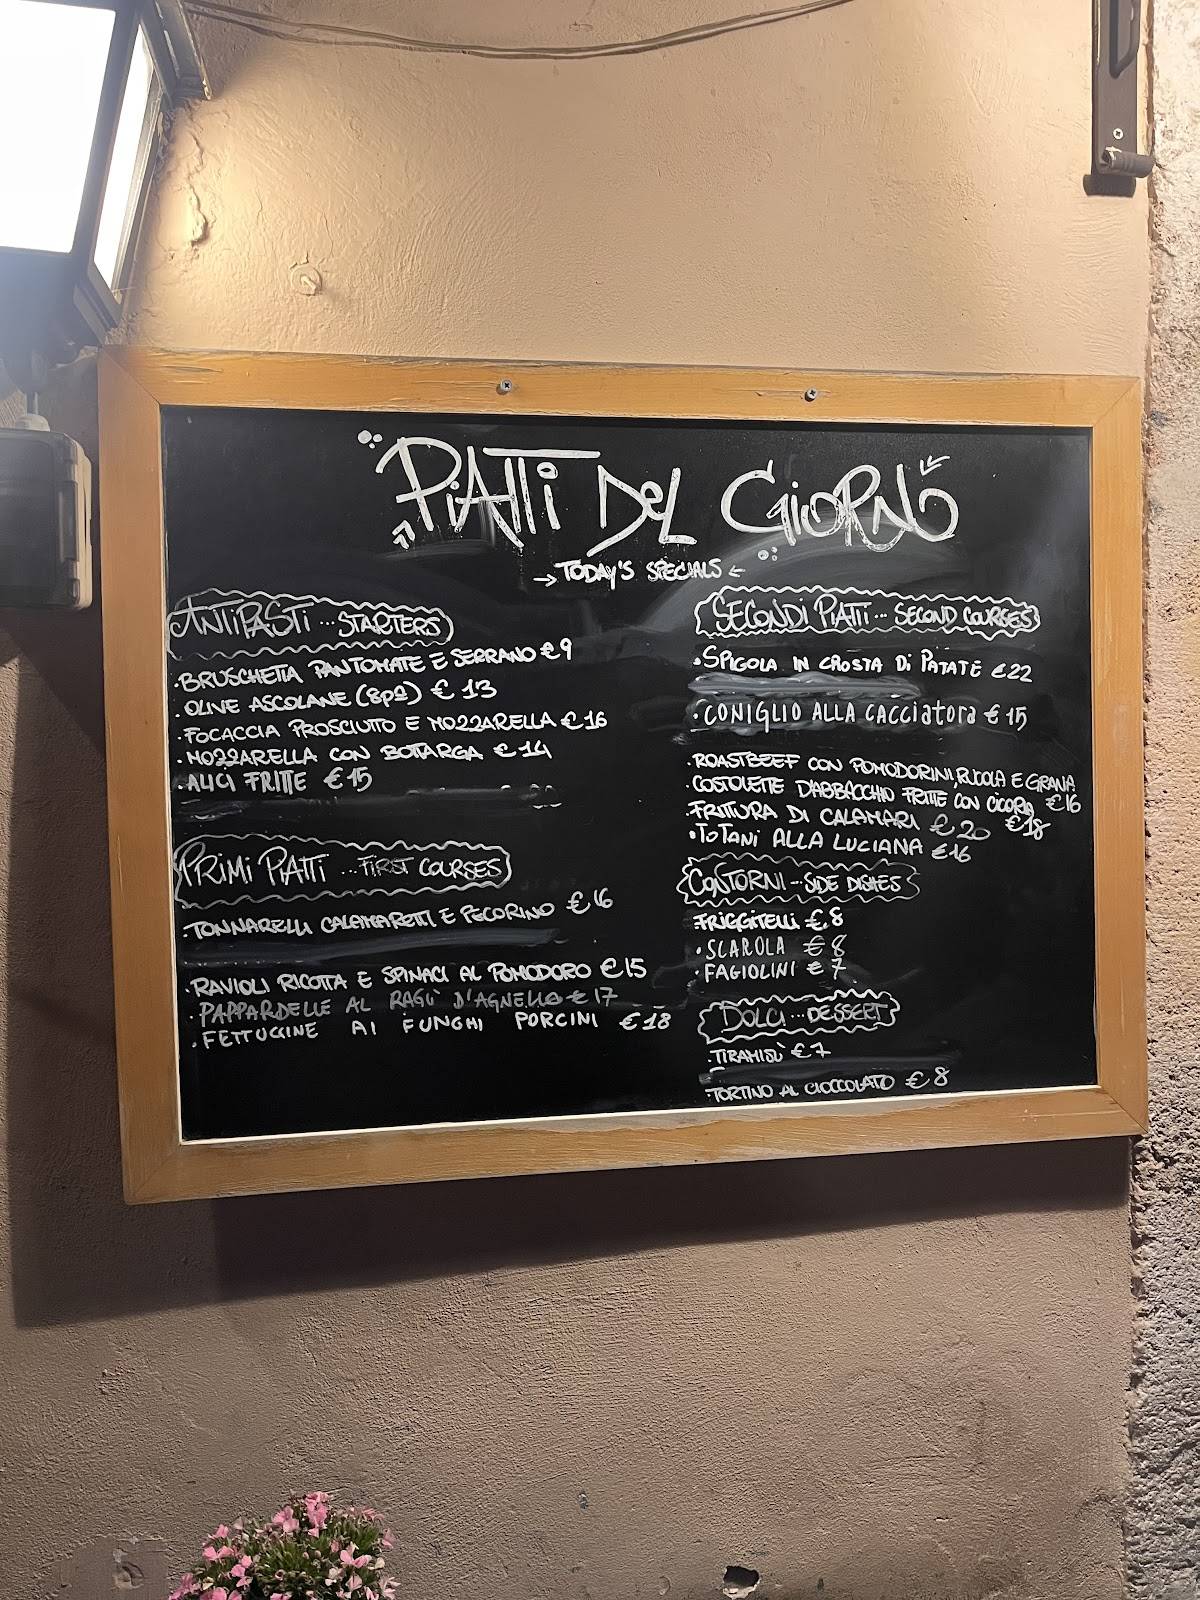 PIATTI DEL GIORNO
→ TODAY'S SPECIALS ←
ANTIPASTI ... STARTERS
· BRUSCHETTA PANTOMATE E SERRANO € 9
· OLIVE ASCOLANE (8pz) € 13
· FOCACCIA PROSCIUTTO E MOZZARELLA € 16
· MOZZARELLA CON BOTTARGA € 14
· ALICI FRITTE € 15
PRIMI PIATTI ... FIRST COURSES
· TONNARELLI CALAMARETTI E PECORINO € 16
· RAVIOLI RICOTTA E SPINACI AL POMODORO € 15
· PAPPARDELLE AL RAGÙ D'AGNELLO € 17
· FETTUCINE AI FUNGHI PORCINI € 18
SECONDI PIATTI ... SECOND COURSES
· SPIGOLA IN CROSTA DI PATATE € 22
· CONIGLIO ALLA CACCIATORA € 15
· ROASTBEEF CON POMODORINI, RUCOLA E GRANA € 16
· COSTOLETTE D'ABBACCHIO FRITTE CON CICORIA € 18
· FRITTURA DI CALAMARI € 20
· TOTANI ALLA LUCIANA € 16
CONTORNI ... SIDE DISHES
· FRIGGITELLI € 8
· SCAROLA € 8
· FAGIOLINI € 7
DOLCI ... DESSERT
· TIRAMISÙ € 7
· TORTINO AL CIOCCOLATO € 8